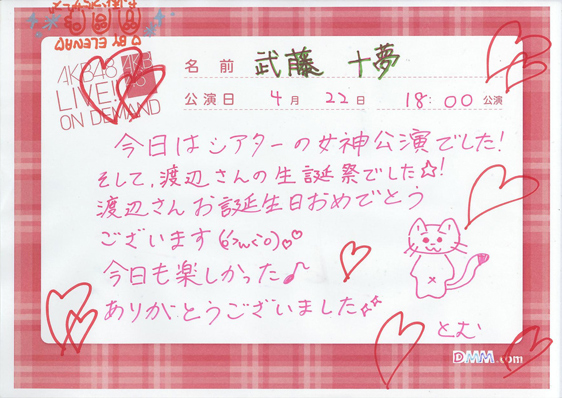 BY ELENA
AKB48
LIVE!!
ON DEMAND
名前 武藤 十夢
公演日 4月 22日 18:00 公演
今日はシアターの女神公演でした!
そして、渡辺さんの生誕祭でした☆!
渡辺さんお誕生日おめでとう
ございます
今日も楽しかった♪
ありがとうございました☆☆
とむ
DMM.com